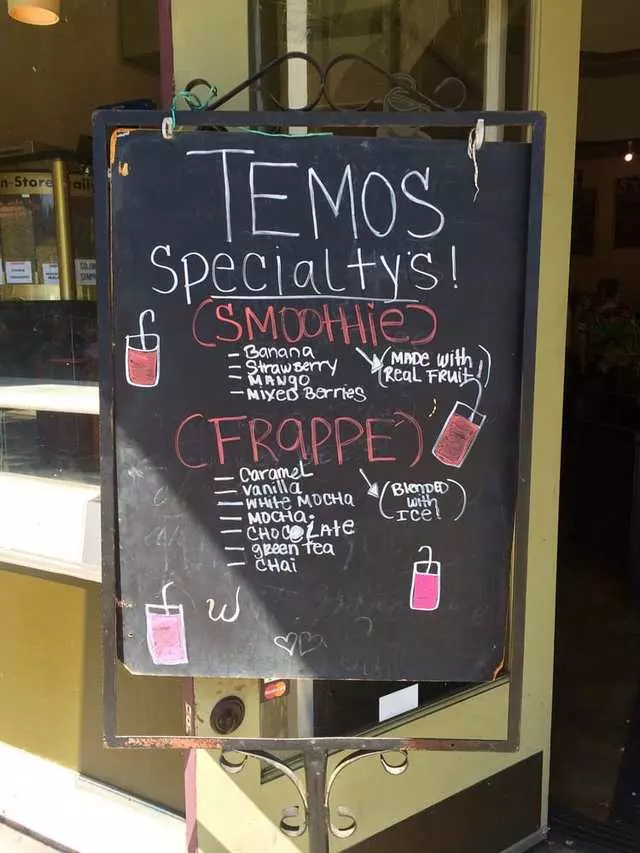 TEMOS
Specialty's!
(SMOOthie)
- Banana
- Strawberry
- MANgo
- Mixed Berries
(MADE with
Real FRuit!)
(FRAPPE)
- CARameL
- Vanilla
- WHite MOCHA
- MOCHA.
- CHOCOLAte
- gReen tea
- CHAi
(BLenDeD
with
ICe!)
W
n-Store